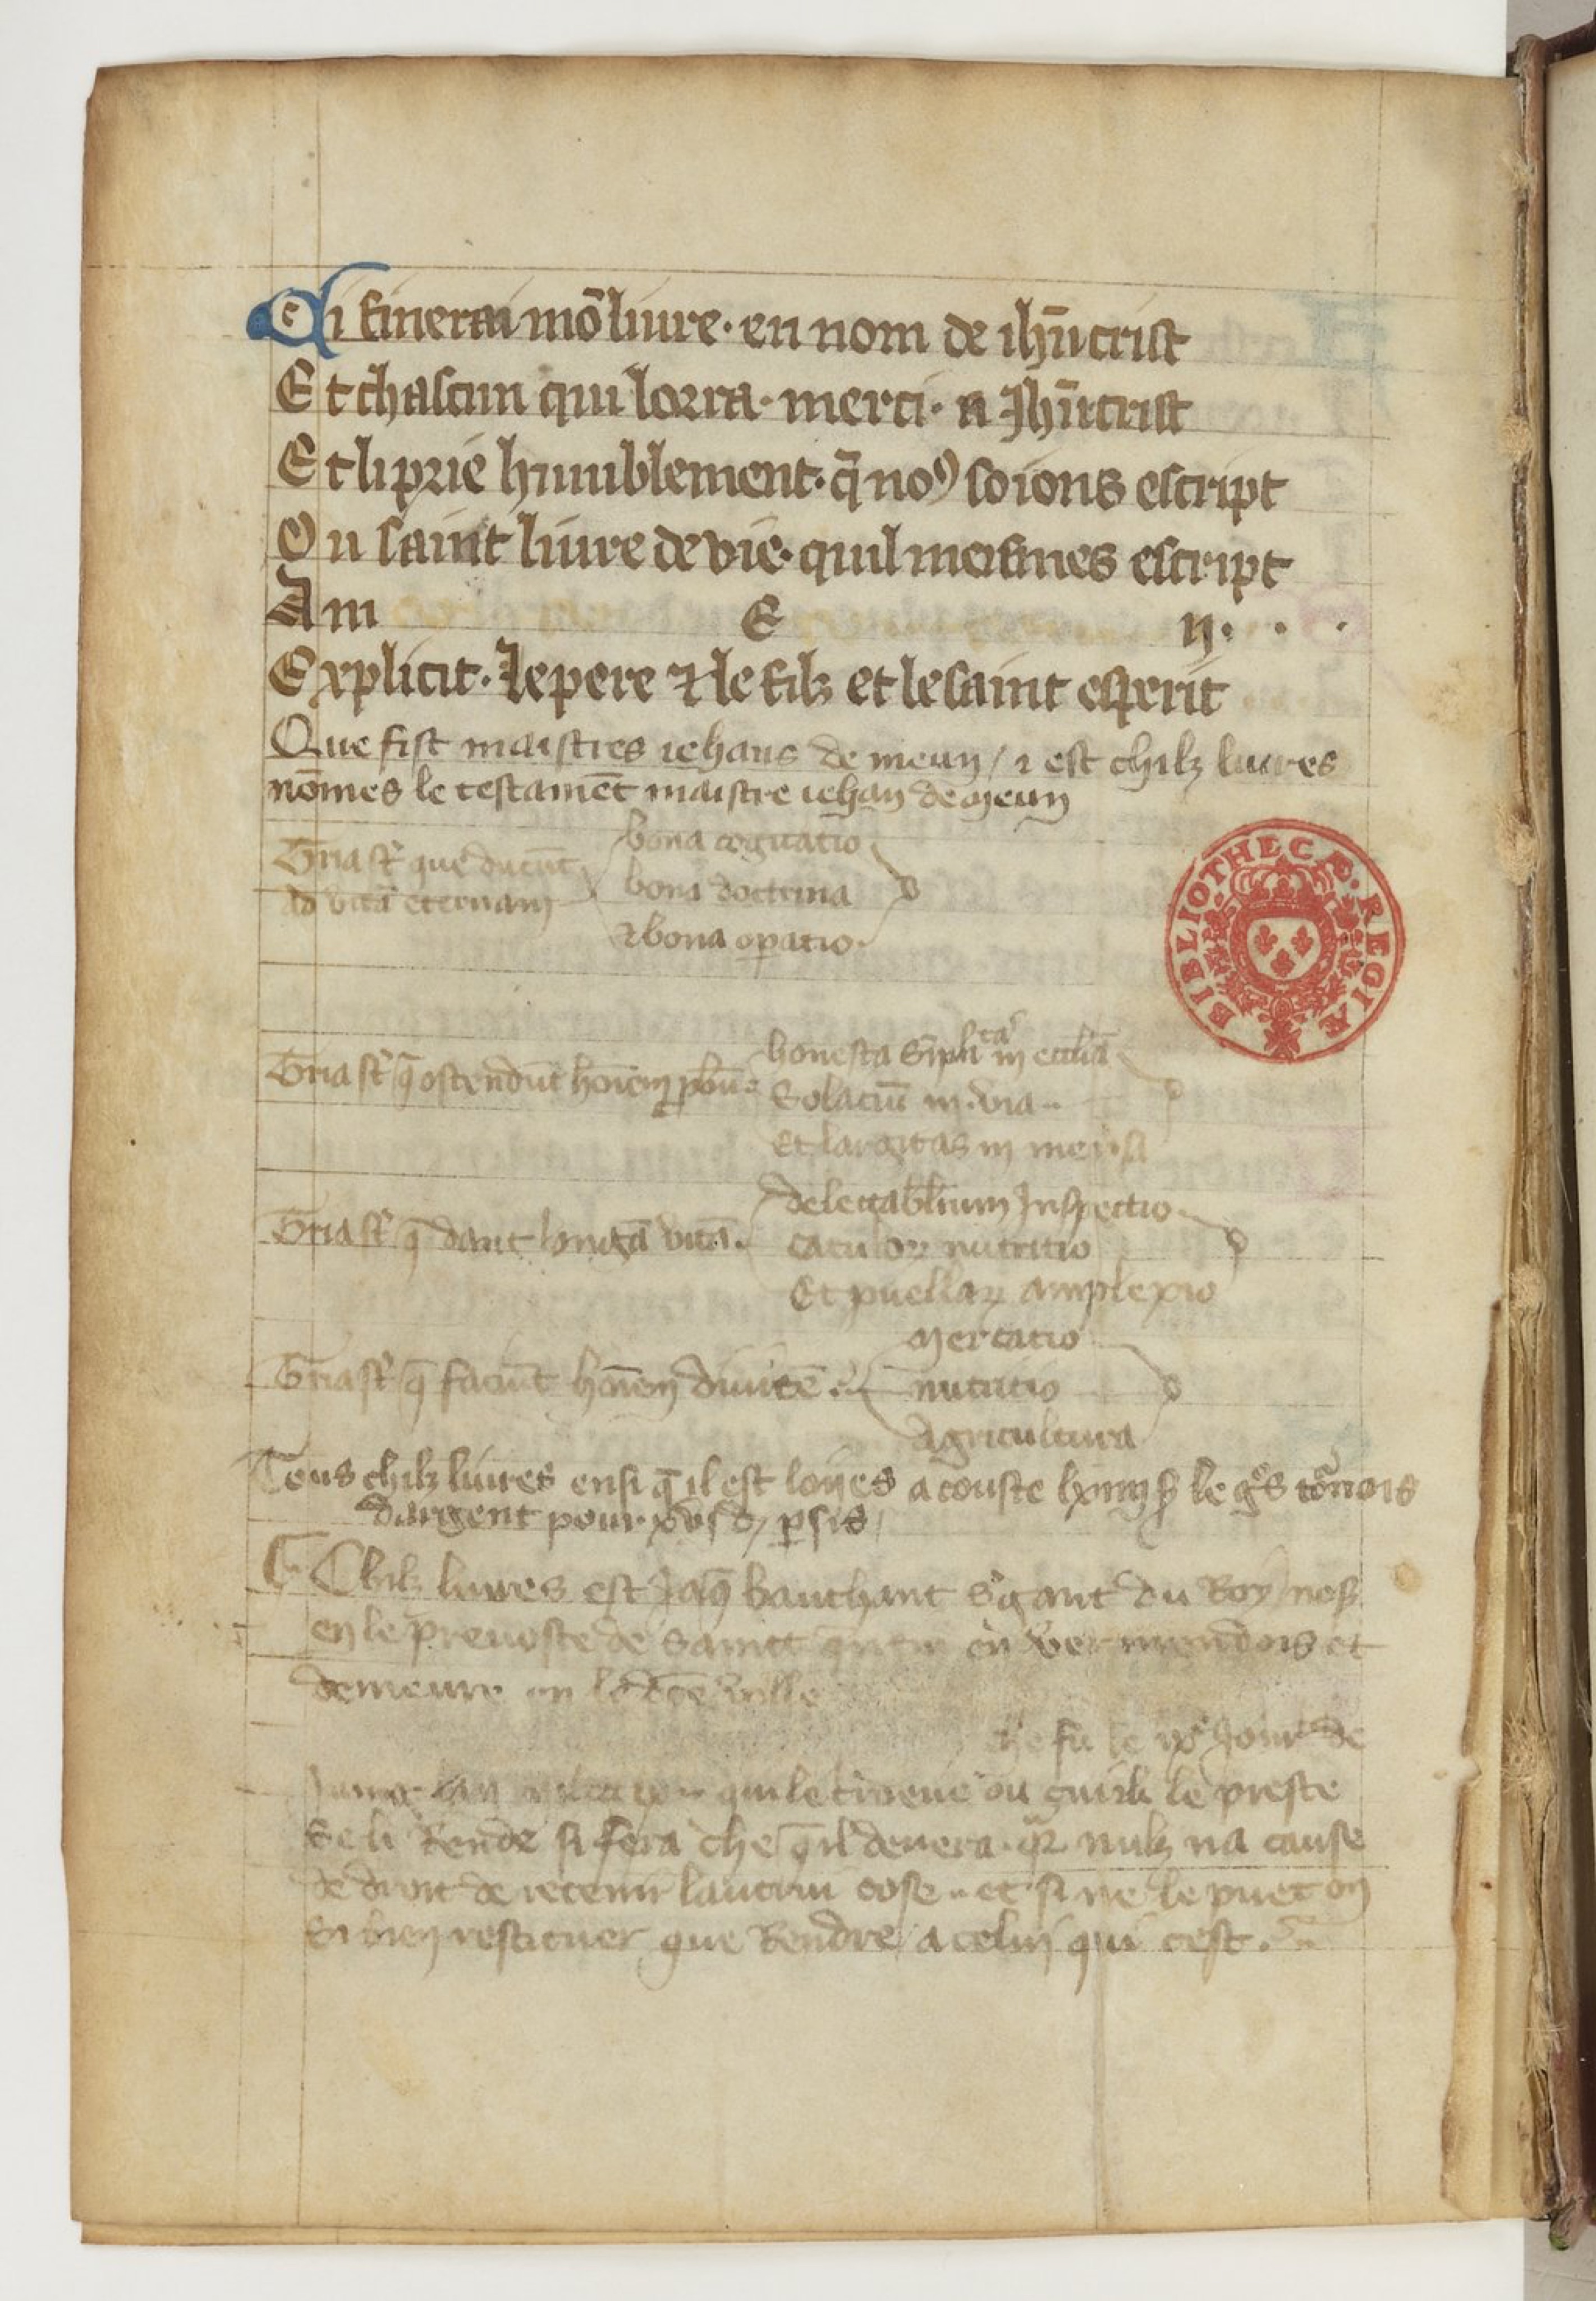 Ci finerai mō liure · en nom de ihū crist
Et chascun qui lorra · merci · a Jhū crist
Et li prie humblement · q̄ noꝰ soions escript
Ou saint liure de vie · quil meismes escript
Am E n · · ·
Explicit · le pere ⁊ le filz et le saint esperit
Que fist maistres iehans de meun / ⁊ est chilz liures
nōmes le testamēt maistre iehan de meun
Tria sᵗ que ducūt bona cogitatio
ad vitā eternam bona doctrina
⁊ bona oꝑatio ·
Tria sᵗ q̄ ostendūt hoīem ꝓbū honesta in ecclīa
Solaciū in via
Et largitas in mensa
Tria sᵗ q̄ dant longā vitā · delectabilium Inspectio
catuloꝝ nutritio
Et puellaꝝ amplexio
Mercatio
Tria sᵗ q̄ faciūt hoīem diuitē nutritio
Agricultura
Tous chilz liures ensi q̄ il est loijes a couste le gͦs toᷣnois
dargent pour ꝑsis
Chilz liures est Jaq̄ bauchant sᷣgant du Roy nosᷣ
en le preuoste de Saint en vermendois et
demeure en le dc̄e ville
che fu le Jour de
qui le treuue ou qui li le preste
Se li Rende si fera che q̄l deuera · qᷓr nulz na cause
de droit de retenir lautrui cose · et si ne le puet on
si bien restituer que Rendre a celuy qui cest ·
BIBLIOTHECÆ REGIÆ